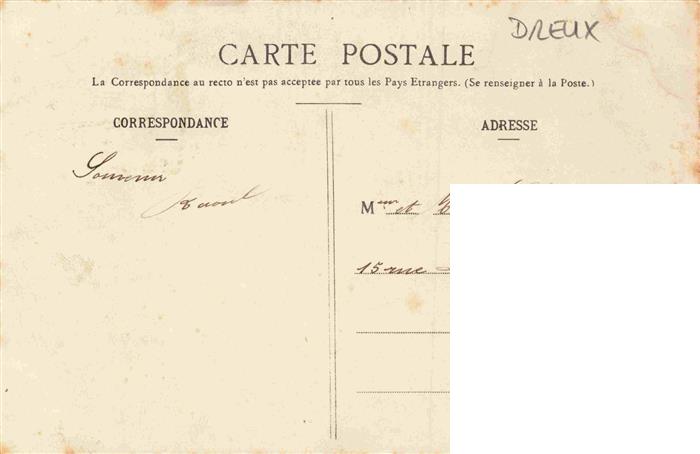 DREUX
CARTE POSTALE
La Correspondance au recto n'est pas acceptée par tous les Pays Etrangers. (Se renseigner à la Poste.)
CORRESPONDANCE
Souvenir
Raoul
ADRESSE
Meur et
15 rue